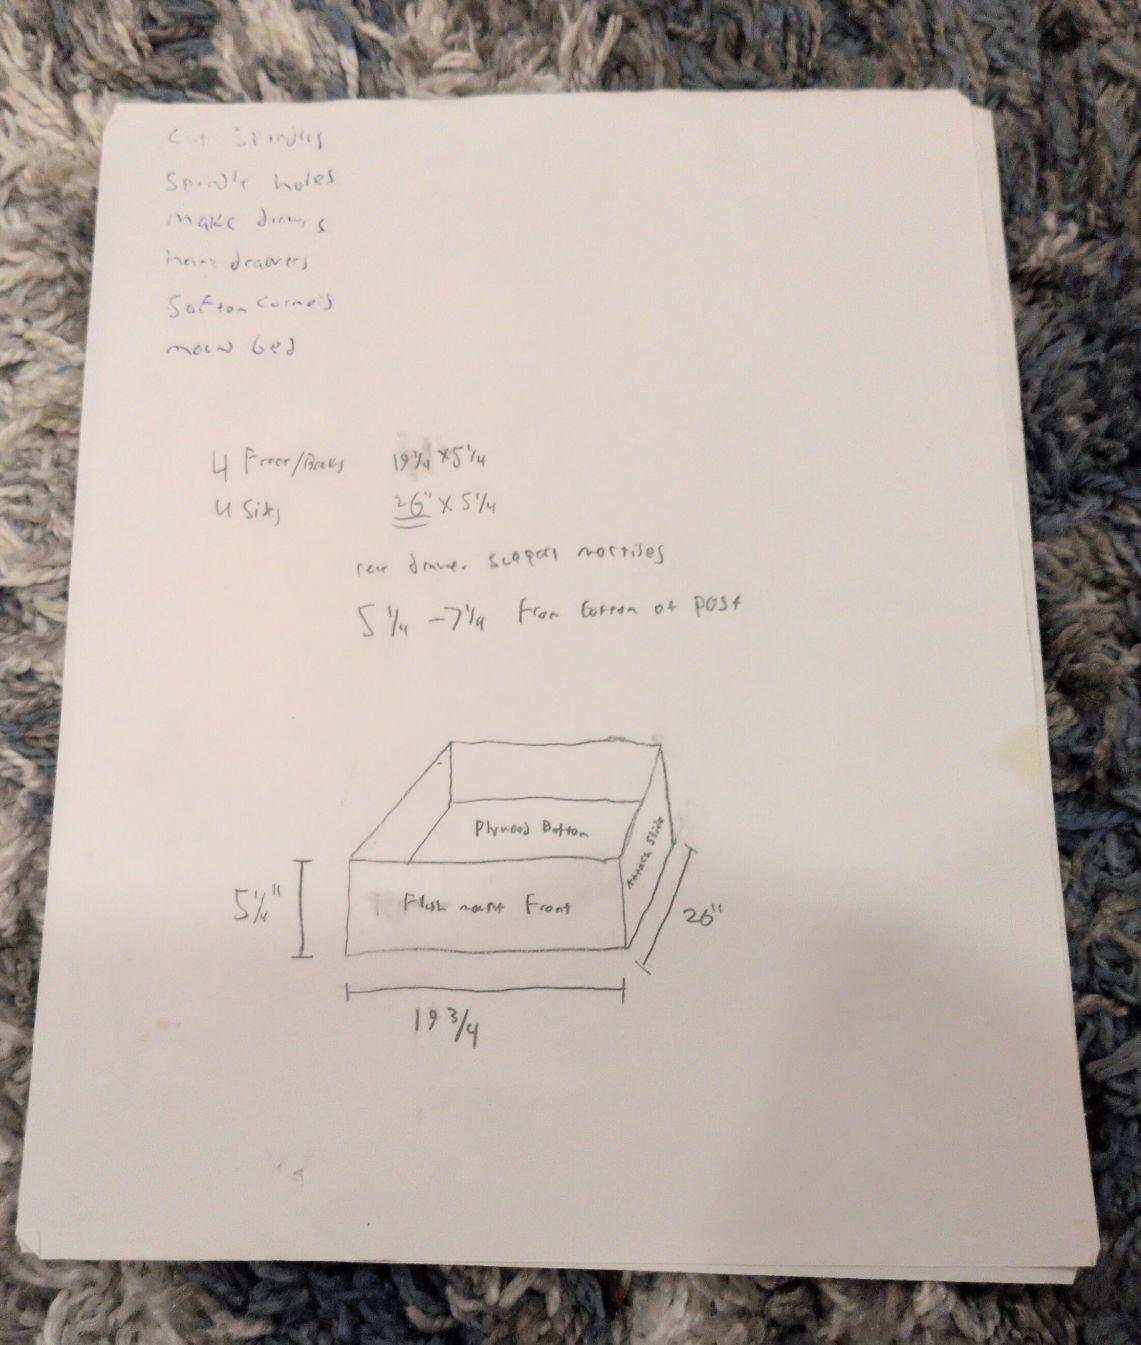 Cut Spindles
Spindle holes
make drawers
hang drawers
Softon Corners
bed
4 Front/Backs 19 3/4 x 5 1/4
4 Sides 26" x 5 1/4
rear drawer support mortises
5 1/4 – 7 1/4 From bottom of post
Plywood Bottom
Attach Slide
5 1/4"
Flush mount Front
26"
19 3/4